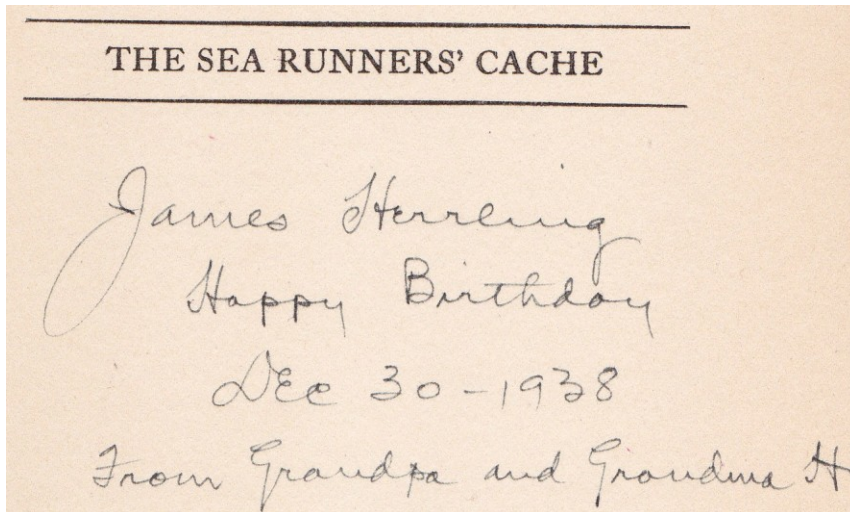 THE SEA RUNNERS' CACHE
James Herrling
Happy Birthday
Dec 30-1938
From Grandpa and Grandma H